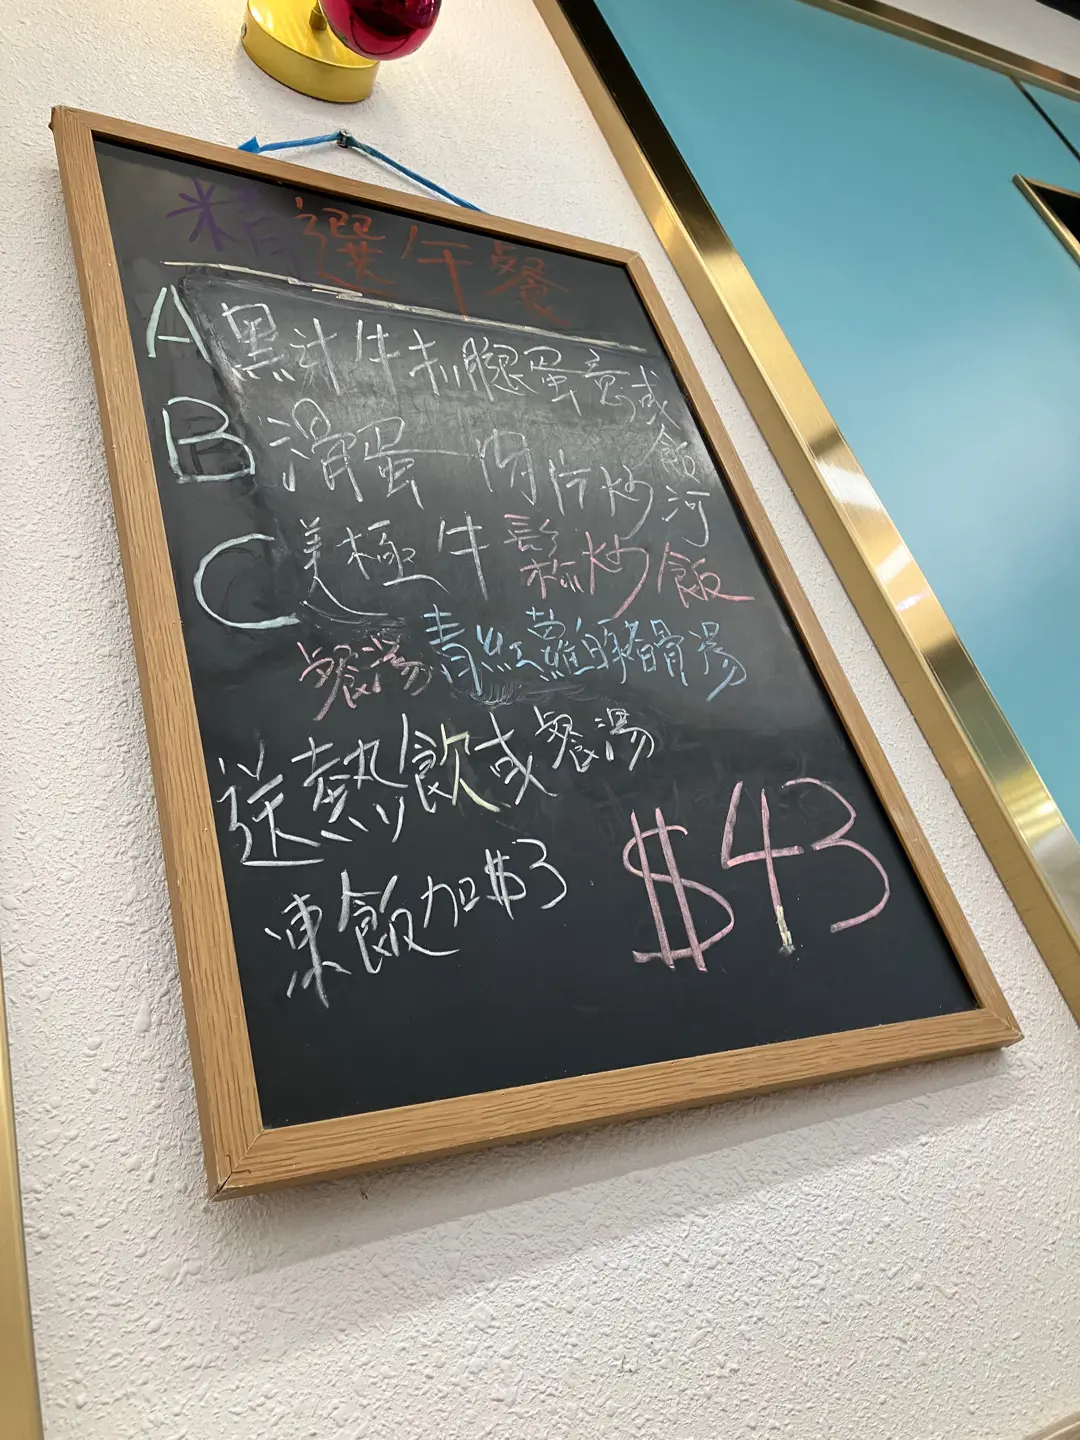 精選午餐
A 黑汁牛扒腿蛋意或飯
B 滑蛋肉片炒河
C 美極牛鬆炒飯
餐湯 青紅蘿白豬骨湯
送熱飲或餐湯
凍飯加$3
$43